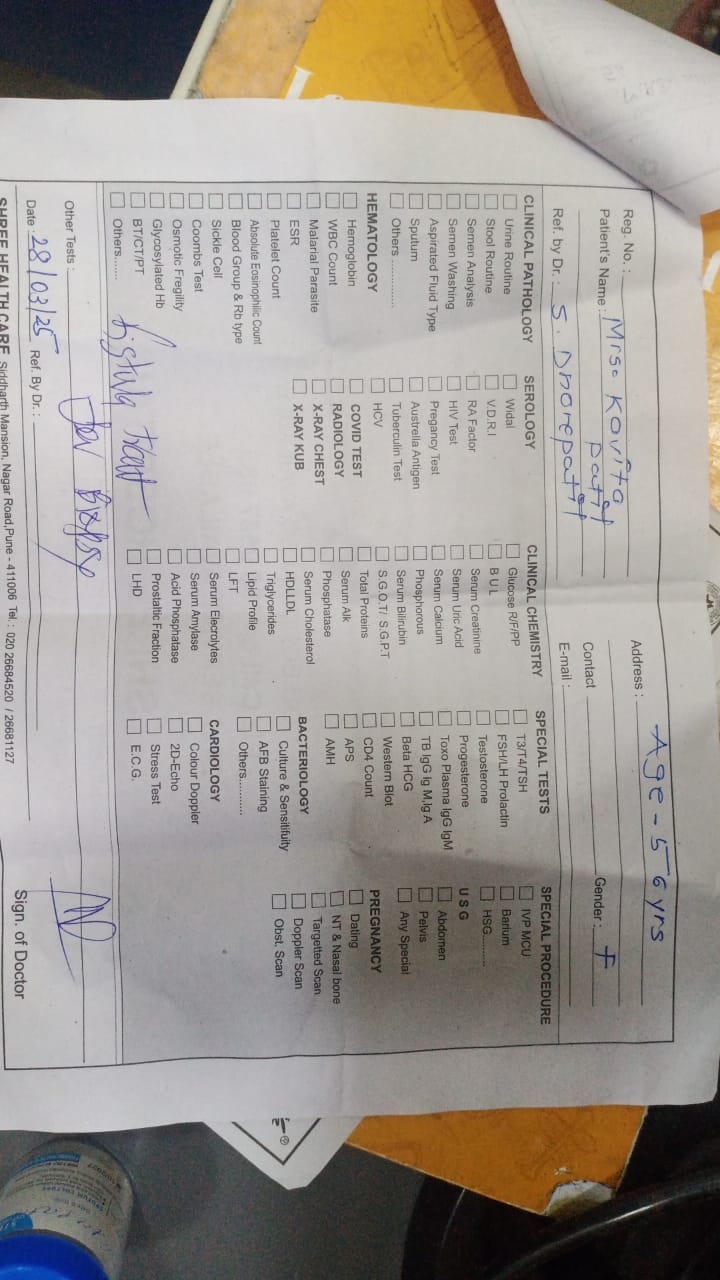 Reg. No. :
Patient's Name : Mrs. Kavita
Patil
Ref. by Dr. : S. Dhorepatil
Address :
Age - 56 yrs
Contact
Gender : F
E-mail :
CLINICAL PATHOLOGY
Urine Routine
Stool Routine
Semen Analysis
Semen Washing
Aspirated Fluid Type
Sputum
Others .............
HEMATOLOGY
Hemoglobin
WBC Count
Malarial Parasite
ESR
Platelet Count
Absolute Eosinophilic Count
Blood Group & Rb type
Sickle Cell
Coombs Test
Osmotic Fregility
Glycosylated Hb
BT/CT/PT
Others.......
SEROLOGY
Widal
V.D.R.I
RA Factor
HIV Test
Pregancy Test
Austrella Antigen
Tuberculin Test
HCV
COVID TEST
RADIOLOGY
X-RAY CHEST
X-RAY KUB
CLINICAL CHEMISTRY
Glucose R/F/PP
B U L
Serum Creatinine
Serum Uric Acid
Serum Calcium
Phosphorous
Serum Bilirubin
S.G.O.T/ S.G.P.T
Total Proteins
Serum Alk
Phosphatase
Serum Cholesterol
HDLLDL
Triglycerides
Lipid Profile
LFT
Serum Elecrolytes
Serum Amylase
Acid Phosphatase
Prostaltic Fraction
LHD
SPECIAL TESTS
T3/T4/TSH
FSH/LH Prolactin
Testosterone
Progesterone
Toxo Plasma IgG IgM
TB IgG Ig M,Ig A
Beta HCG
Western Blot
CD4 Count
APS
AMH
BACTERIOLOGY
Culture & Sensitifuity
AFB Staining
Others...........
CARDIOLOGY
Colour Doppler
2D-Echo
Stress Test
E.C.G.
SPECIAL PROCEDURE
IVP MCU
Barium
HSG..........
U S G
Abdomen
Pelvis
Any Special
PREGNANCY
Dating
NT & Nasal bone
Targetted Scan
Doppler Scan
Obst. Scan
fistula tract
Other Tests : for Biopsy
Date : 28/03/25 Ref. By Dr. :
Sign. of Doctor
SHREE HEALTH CARE Siddharth Mansion, Nagar Road,Pune - 411006 Tel. : 020 26684520 / 26681127